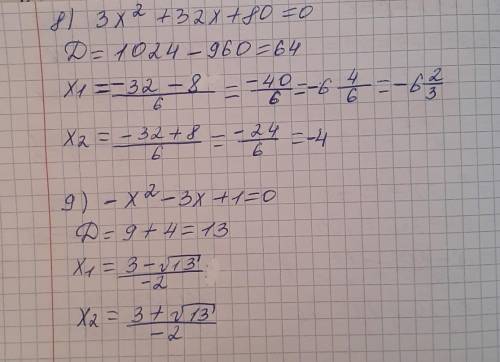 8) 3x² + 32x + 80 = 0
Д = 1024 - 960 = 64
x1 = (-32 - 8)/6 = -40/6 = -6 4/6 = -6 2/3
x2 = (-32 + 8)/6 = -24/6 = -4
9) -x² - 3x + 1 = 0
Д = 9 + 4 = 13
x1 = (3 - √13)/-2
x2 = (3 + √13)/-2